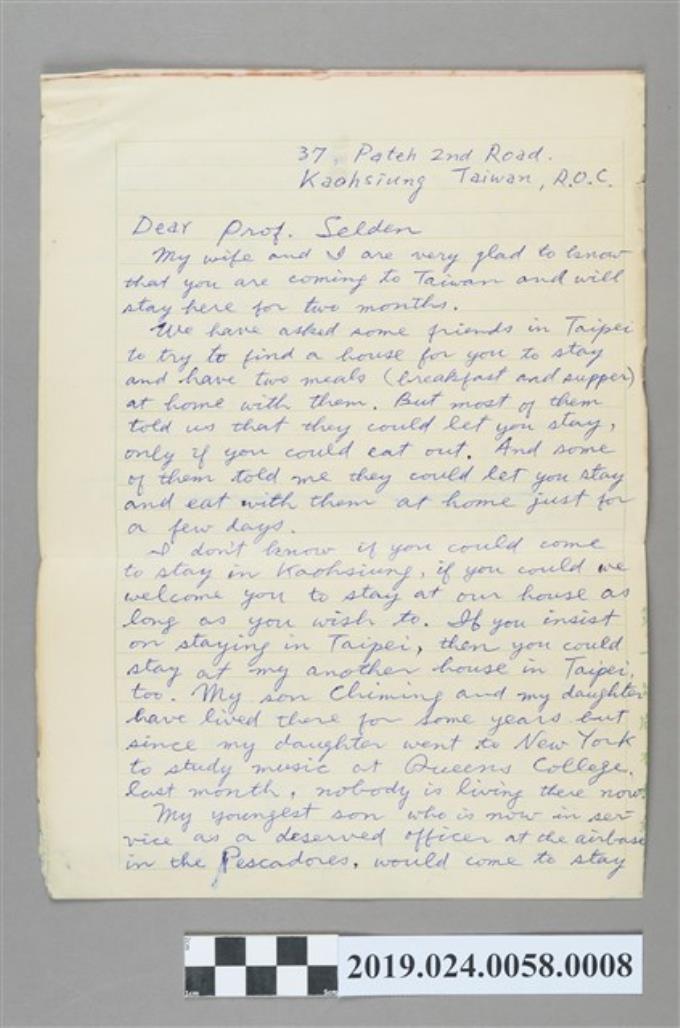 37, Pateh 2nd Road.
Kaohsiung Taiwan, R.O.C.
Dear Prof. Selden
My wife and I are very glad to know
that you are coming to Taiwan and will
stay here for two months.
We have asked some friends in Taipei
to try to find a house for you to stay
and have two meals (breakfast and supper)
at home with them. But most of them
told us that they could let you stay,
only if you could eat out. And some
of them told me they could let you stay
and eat with them at home just for
a few days.
I don't know if you could come
to stay in Kaohsiung, if you could we
welcome you to stay at our house as
long as you wish to. If you insist
on staying in Taipei, then you could
stay at my another house in Taipei,
too. My son Chiming and my daughter
have lived there for some years but
since my daughter went to New York
to study music at Queens College,
last month, nobody is living there now.
My youngest son who is now in ser-
vice as a deserved officer at the airbase
in the Pescadores, would come to stay
2019.024.0058.0008